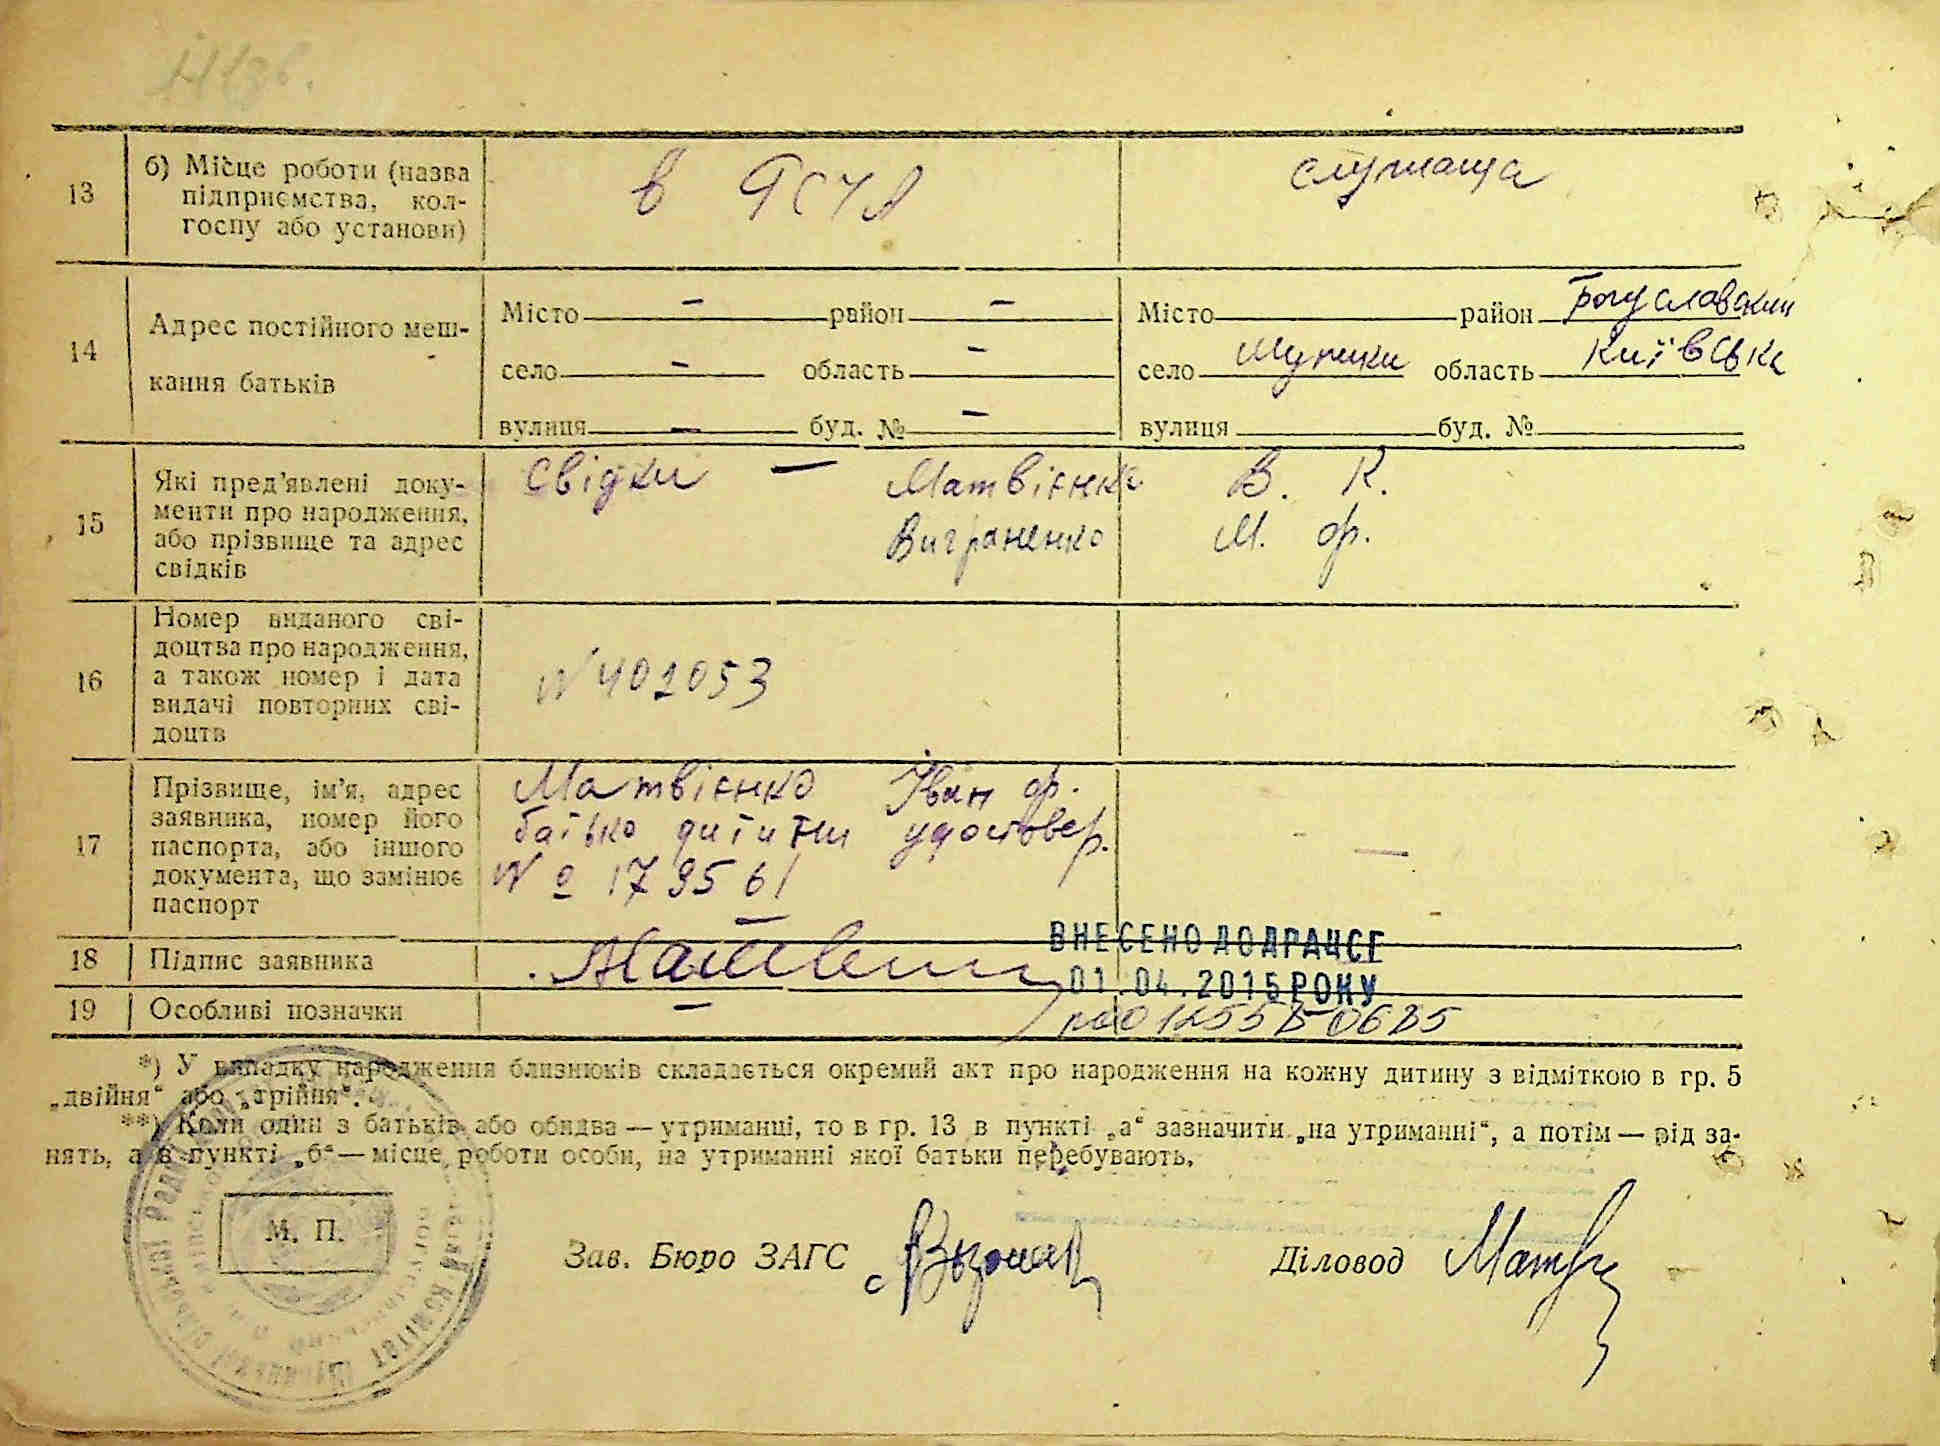 13
б) Місце роботи (назва
підприємства, кол-
госпу або установи)
в
служаща
14
Адрес постійного меш-
кання батьків
Місто — район —
село — область —
вулиця — буд. № —
Місто район Богуславский
село область Київська
вулиця буд. №
15
Які пред'явлені доку-
менти про народження,
або прізвище та адрес
свідків
Свідки — Матвієнко В. К.
Виграненко М. Ф.
16
Номер виданого сві-
доцтва про народження,
а також номер і дата
видачі повторних сві-
доцтв
N 402053
17
Прізвище, ім'я, адрес
заявника, номер його
паспорта, або іншого
документа, що замінює
паспорт
Матвієнко Іван Ф.
батько дитини удостовер.
№ 179561
—
18
Підпис заявника
ВНЕСЕНО ДО ДРАЦСГ
01.04.2015 РОКУ
19
Особливі позначки
—
*) У випадку народження близнюків складається окремий акт про народження на кожну дитину з відміткою в гр. 5
„двійня“ або „трійня“.
**) Коли один з батьків або обидва — утриманці, то в гр. 13 в пункті „а“ зазначити „на утриманні“, а потім — рід за-
нять, а в пункті „б“ — місце роботи особи, на утриманні якої батьки перебувають.
М. П.
Зав. Бюро ЗАГС
Діловод